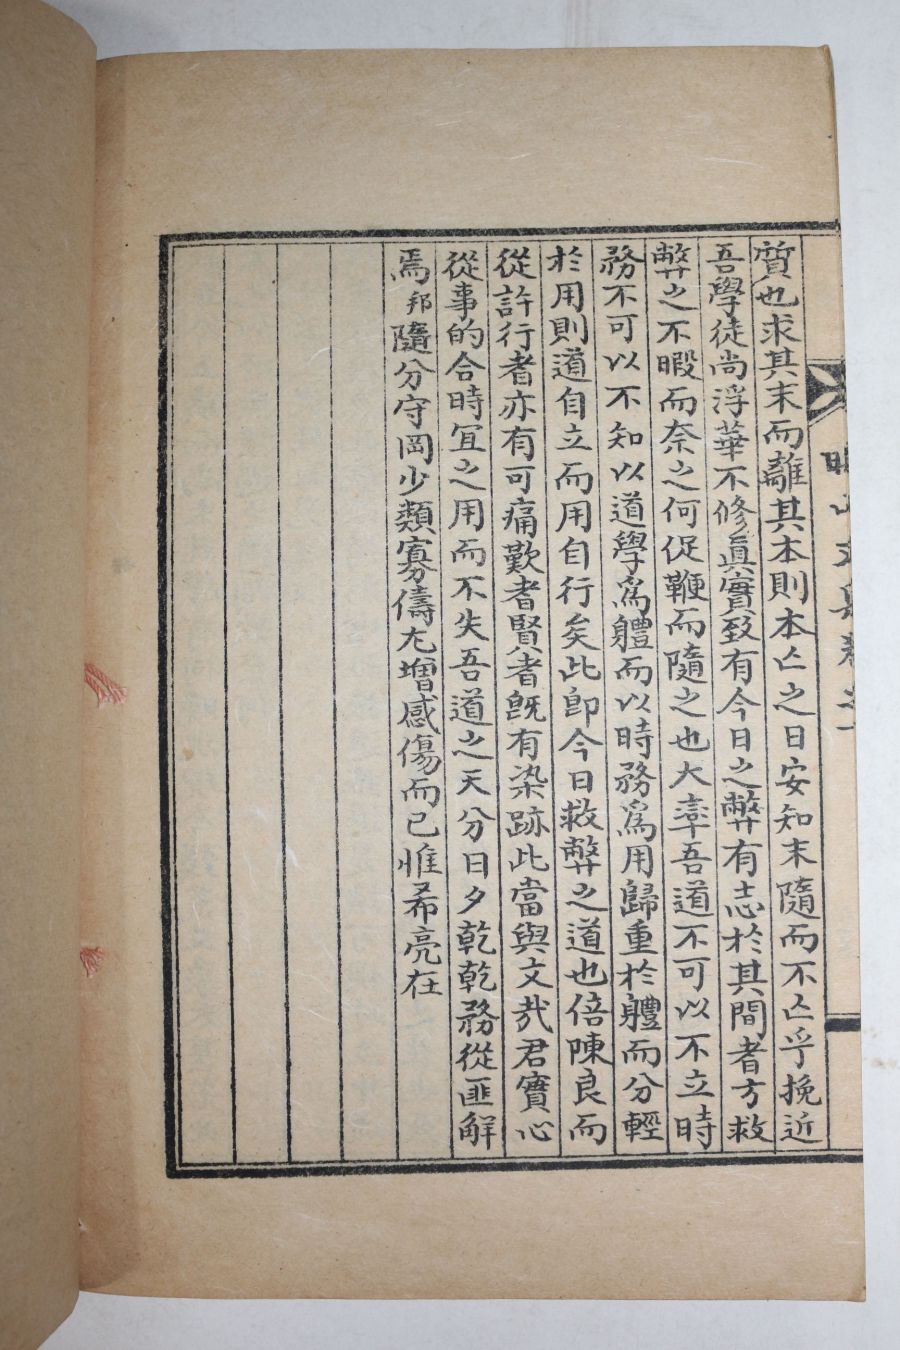 山文集卷之一
質也求其末而離其本則本亾之日安知末隨而不亾乎挽近
吾學徒尚浮華不修眞實致有今日之弊有志於其間者方救
弊之不暇而奈之何促鞭而隨之也大率吾道不可以不立時
務不可以不知以道學爲體而以時務爲用歸重於體而分輕
於用則道自立而用自行矣此卽今日救弊之道也倍陳良而
從許行者亦有可痛歎者賢者旣有染跡此當與文哉君實心
從事的合時宜之用而不失吾道之天分日夕乾乾務從匪解
焉邦隨分守岡少類寡儔尤增感傷而已惟希亮在